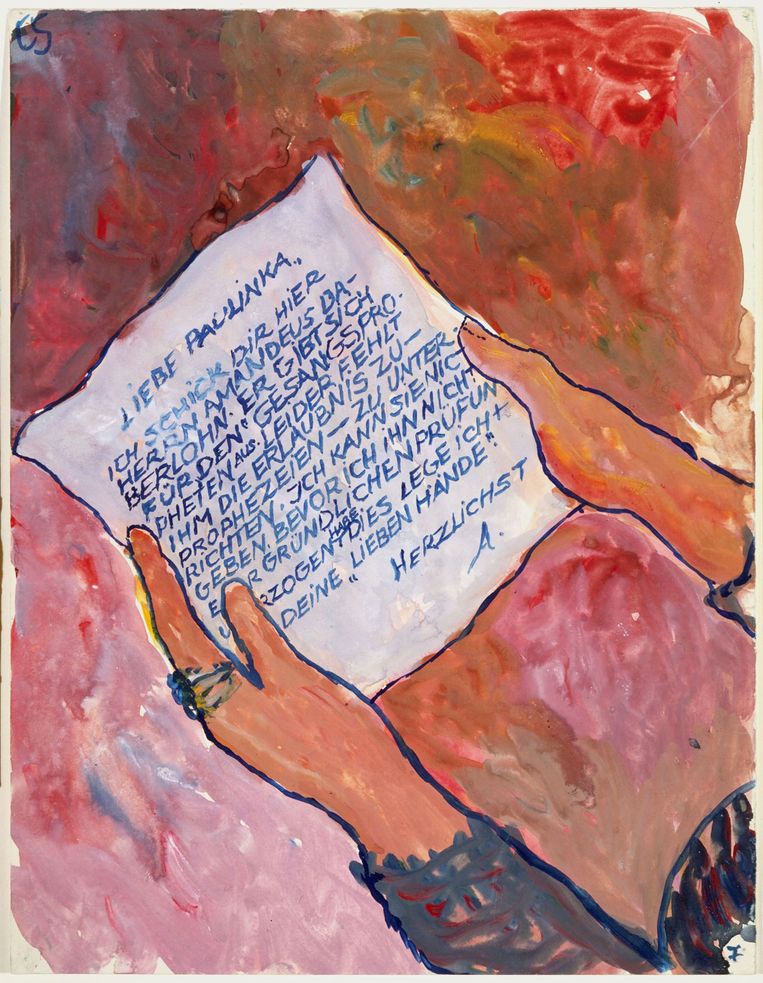 CS
LIEBE PAULINKA„
ICH SCHICK DIR HIER
HERRN AMANDEUS DA-
BERLOHN. ER GIBT SICH
FÜR DEN „GESANGSPRO-
PHETEN AUS. LEIDER FEHLT
IHM DIE ERLAUBNIS ZU —
PROPHEZEIEN — ZU UNTER-
RICHTEN. ICH KANN SIE NIC
GEBEN. BEVOR ICH IHN NICH
GRÜNDLICHEN PRÜFUN
HABE. DIES LEGE ICH +
DEINE „LIEBEN HÄNDE"
HERZLICHST
A.
7